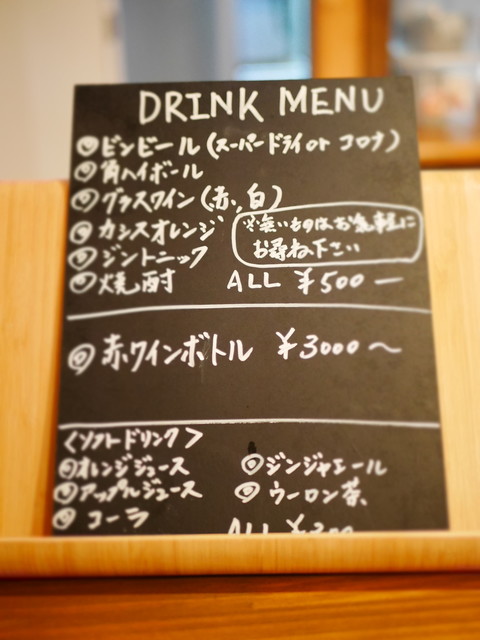 DRINK MENU
◎ビンビール(スーパードライor コロナ)
◎角ハイボール
◎グラスワイン(赤、白)
◎カシスオレンジ
※無いものはお気軽に
お尋ね下さい
◎ジントニック
◎焼酎 ALL ¥500ー
◎赤ワインボトル ¥3000〜
<ソフトドリンク>
◎オレンジジュース ◎ジンジャエール
◎アップルジュース ◎ウーロン茶
◎コーラ
ALL